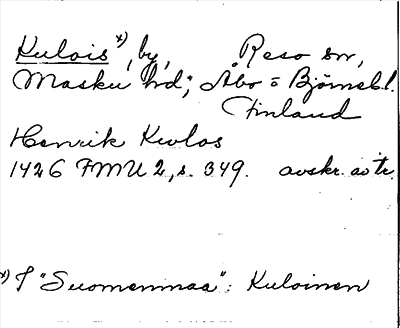 Kulois x), by, Reso sn,
Masku hd; Åbo o Björneb.l.
Finland
Henrik Kwlos
1426 FMU 2, s. 349. avskr. av tr.
x) I "Suomenmaa": Kuloinen